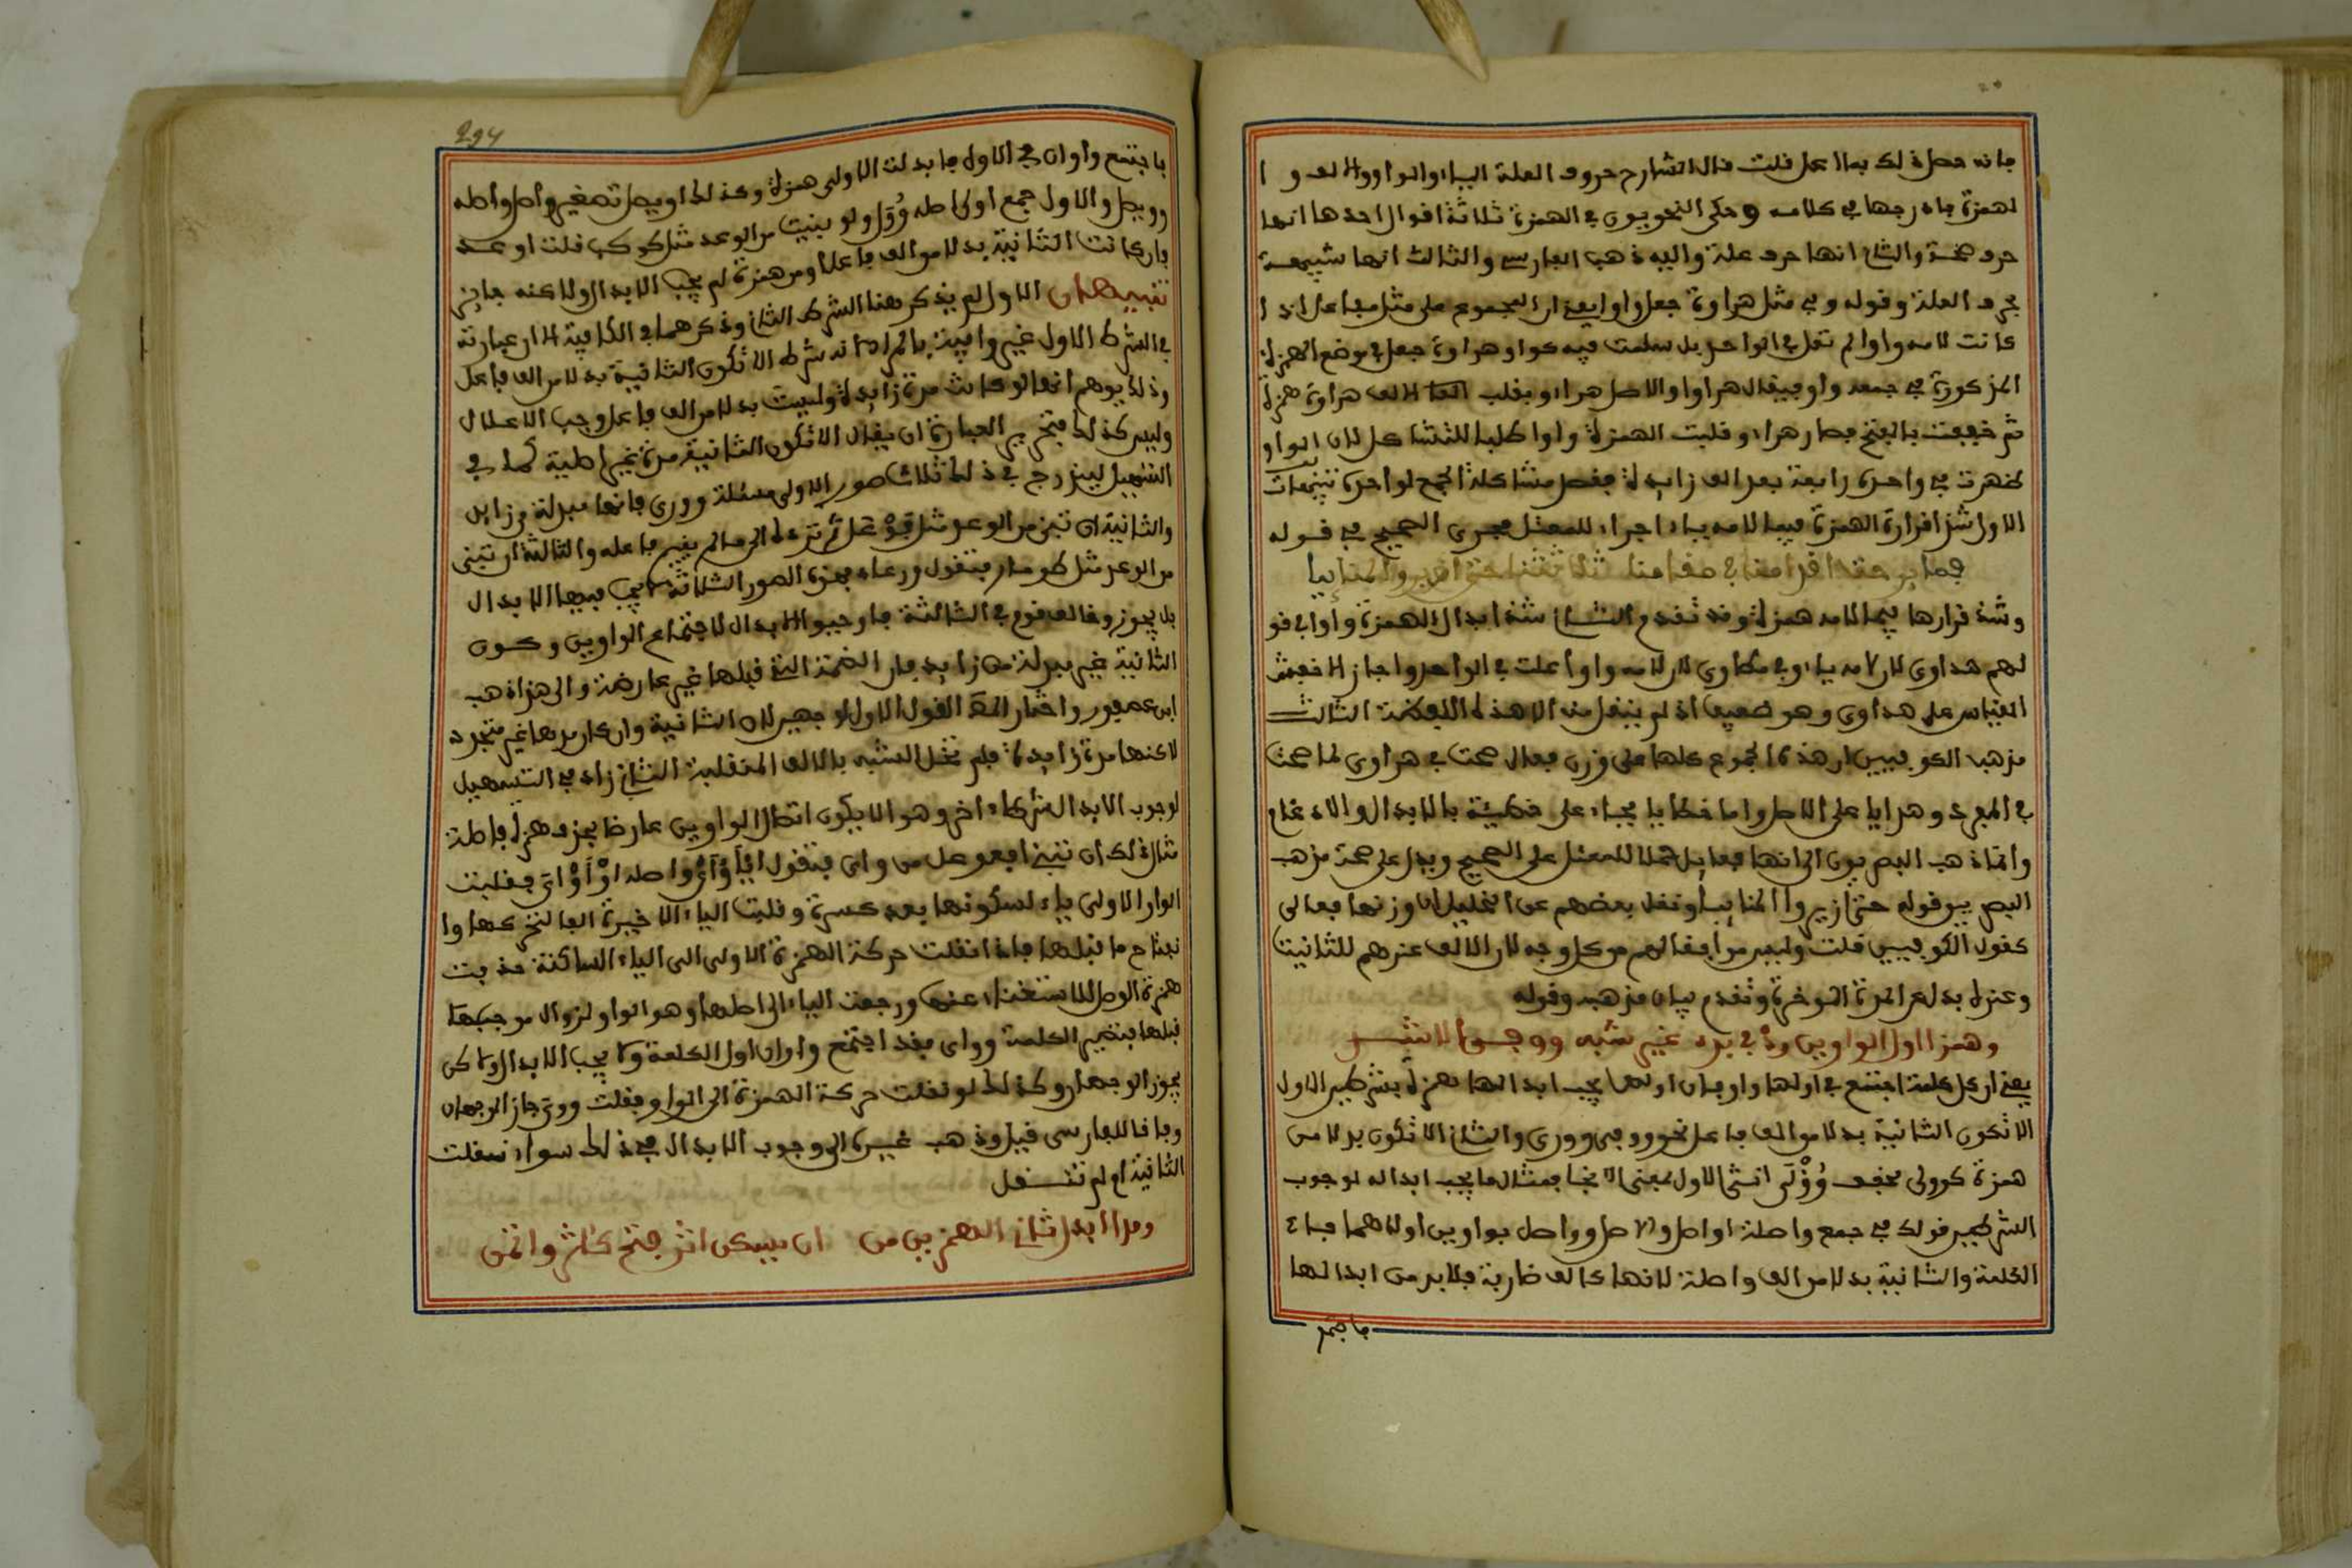 فإنه حصل ذلك بما اعل قلت قال الشارح حروف العلة الياء والواو والالف وا
لهمزة فادرجها في كلامه وحكى النحويون في الهمزة ثلاثة اقوال احدها انها
حرف صحة والثاني انها حرف علة واليه ذهب الفارسي والثالث انها شبيهة
بحرف العلة وقوله وفي مثل هراوة جعل واوا يعني ان المجموع على مثل مفاعل اذا
كانت لامه واوا لم تعل في الواحد بل سلمت فيه كواو هراوة جعل في موضع الهمزة
المذكورة في جمعه واو فيقال هراوا والاصل هرائو بقلب الف هراوة همزة
ثم خففت بالفتح فصار هراءو قلبت الهمزة واوا طلبا للتشاكل لان الواو
ظهرت في واحده رابعة بعد الف زايدة فقصد مشاكلة الجمع لواحده تنبيهات
الاول شذ اقرار الهمزة فيما لامه ياء اجراء للمعتل مجرى الصحيح في قوله
فما برحت اقدامنا في مقامنا ثلاثتنا حتى ازيروا المنائيا
وشذ قرارها فيما لامه همزة وقد تقدم الثاني شذ ابدال الهمزة واوا في قو
لهم هداوى لان لامه ياء وفي مطاوى لان لامه واوا اعلت في الواحد واجاز الاخفش
القياس على هداوى وهو ضعيف اذ لم ينقل منه الا هذه اللفظة الثالث
مذهب الكوفيين ان هذه الجموع كلها على وزن فعالى صحت في هراوى لما صحت
في المفرد وهدايا على الاصل واما خطايا فجاء على خطيئة بالابدال والادغام
وانما ذهب البصريون الى انها فعايل حملا للمعتل على الصحيح ويدل على صحة مذهب
البصريين قوله حتى ازيروا المنائيا ونقل بعضهم عن الخليل ان وزنها فعالى
كقول الكوفيين قلت وليس موافقا لهم من كل وجه لان الالف عندهم للتانيث
وعنده بدل من المدة المؤخرة وتقدم بيان مذهبه وقوله
وهمزا اول الواوين رد في بدء غير شبه ووفي الاشد
يعني ان كل كلمة اجتمع في اولها واوان اولهما يجب ابدالها همزة بشرطين الاول
الا تكون الثانية بدلا من الف فاعل نحو ووفي ووري والثاني الا تكون بدلا من
همزة كوولى مخفف وؤلى انثى الاول بمعنى الالجا فمثال ما يجب ابداله لوجود
الشرطين قولك في جمع واصلة اواصل والاصل وواصل بواوين اولاهما فاء
الكلمة والثانية بدلا من الف واصلة لانها كالف ضاربة فلا بد من ابدالها
فاجتمع
294
فاجتمع واوان في الاول فابدلت الاولى همزة وكذلك اويصل تصغير واصل واصله
وويصل والاول جمع اولى اصله وول ولو بنيت من الوعد مثل كوكب قلت اوعد
فان كانت الثانية بدلا من الف فاعل او من همزة لم يجب الابدال ولاكنه جايز
تنبيهان الاول لم يذكر هنا الشرط الثاني وذكرهما في الكافية الا ان عبارته
في الشرط الاول غير وافية بالمراد لانه شرط الا تكون الثانية بدلا من الف فاعل
وذلك يوهم انها لو كانت مدة زايدة وليست بدلا من الف فاعل وجب الاعلال
وليس كذلك فتحرير العبارة ان يقال الا تكون الثانية مدة غير اصلية كما في
التسهيل ليندرج في ذلك ثلاث صور الاولى مسئلة ووري فانها مبدلة من زايد
والثانية ان تبني من الوعد مثل فوعل ثم ترده الى ما لم يسم فاعله والثالثة ان تبنى
من الوعد مثل طومار فتقول ووعاد فهذه الصور الثلاثة لا يجب فيها الابدال
بل يجوز وخالف قوم في الثالثة فاوجبوا الابدال لاجتماع الواوين وكون
الثانية غير مبدلة من زايد فان الضمة التي قبلها غير عارضة والى هذا ذهب
ابن عصفور واختار المص القول الاول لوجهين لان الثانية وان كان مدها غير متجدد
لاكنها مدة زايدة فلم تخل عن الشبه بالالف المنقلبة الثاني زاد في التسهيل
لوجوب الابدال شرطا اخر وهو الا يكون اتصال الواوين عارضا بحذف همزة فاصلة
مثال ذلك ان تبني افعوعل من واى فتقول ايأوأى واصله اوأوأى فقلبت
الواو الاولى ياء لسكونها بعد كسرة وقلبت الياء الاخيرة الفا لتحركها وا
نفتاح ما قبلها فاذا نقلت حركة الهمزة الاولى الى الياء الساكنة حذفت
همزة الوصل للاستغناء عنها ورجعت الياء الى اصلها وهو الواو لزوال موجب
قبلها فتصير الكلمة وواى فقد اجتمع واوان اول الكلمة ولا يجب الابدال ولاكن
يجوز الوجهان وكذلك لو نقلت حركة الهمزة الى الواو فقلت ووى جاز الوجهان
وفاقا للفارسي قيل وذهب غيره الى وجوب الابدال في ذلك سواء نقلت
الثانية او لم تنقل
ومدا ابدل ثاني الهمزين من ان يسكن اثر فتح كاثر واتمن